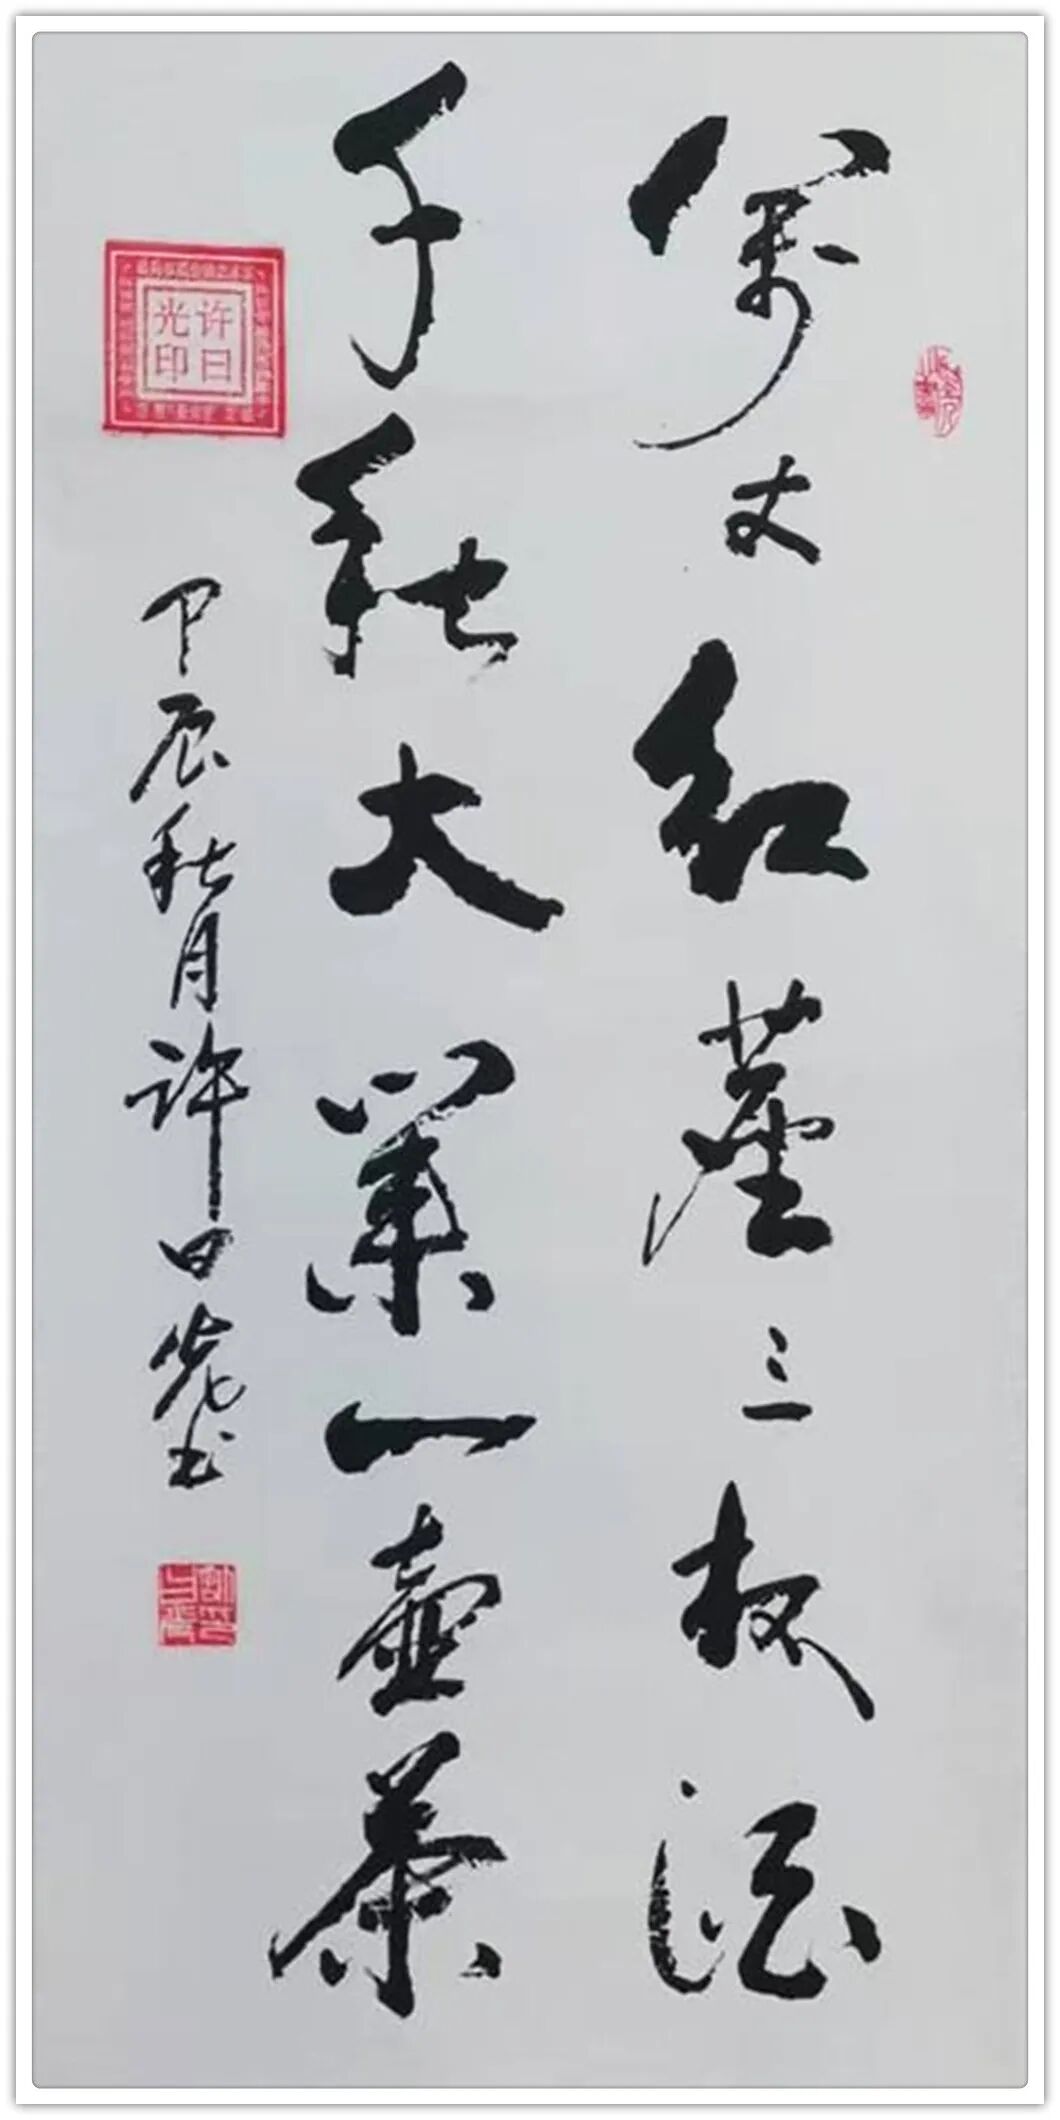 万丈红尘三杯酒
千秋大業一壶茶
甲辰秋月许日光书
许日光印